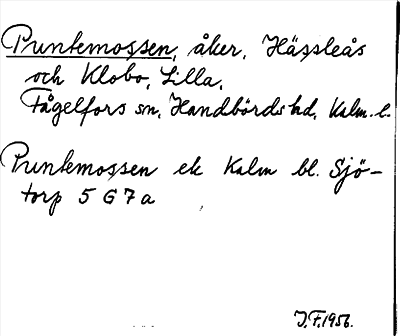 Pruntemossen, åker, Hässleås
och Klobo, Lilla,
Fågelfors sn, Handbörds hd, Kalm. l.
Pruntemossen ek Kalm bl. Sjö-
torp 5 G 7 a
J.F. 1956.